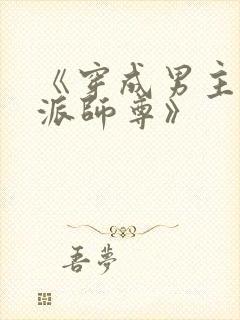 《穿成男主
派師尊》
喜夢